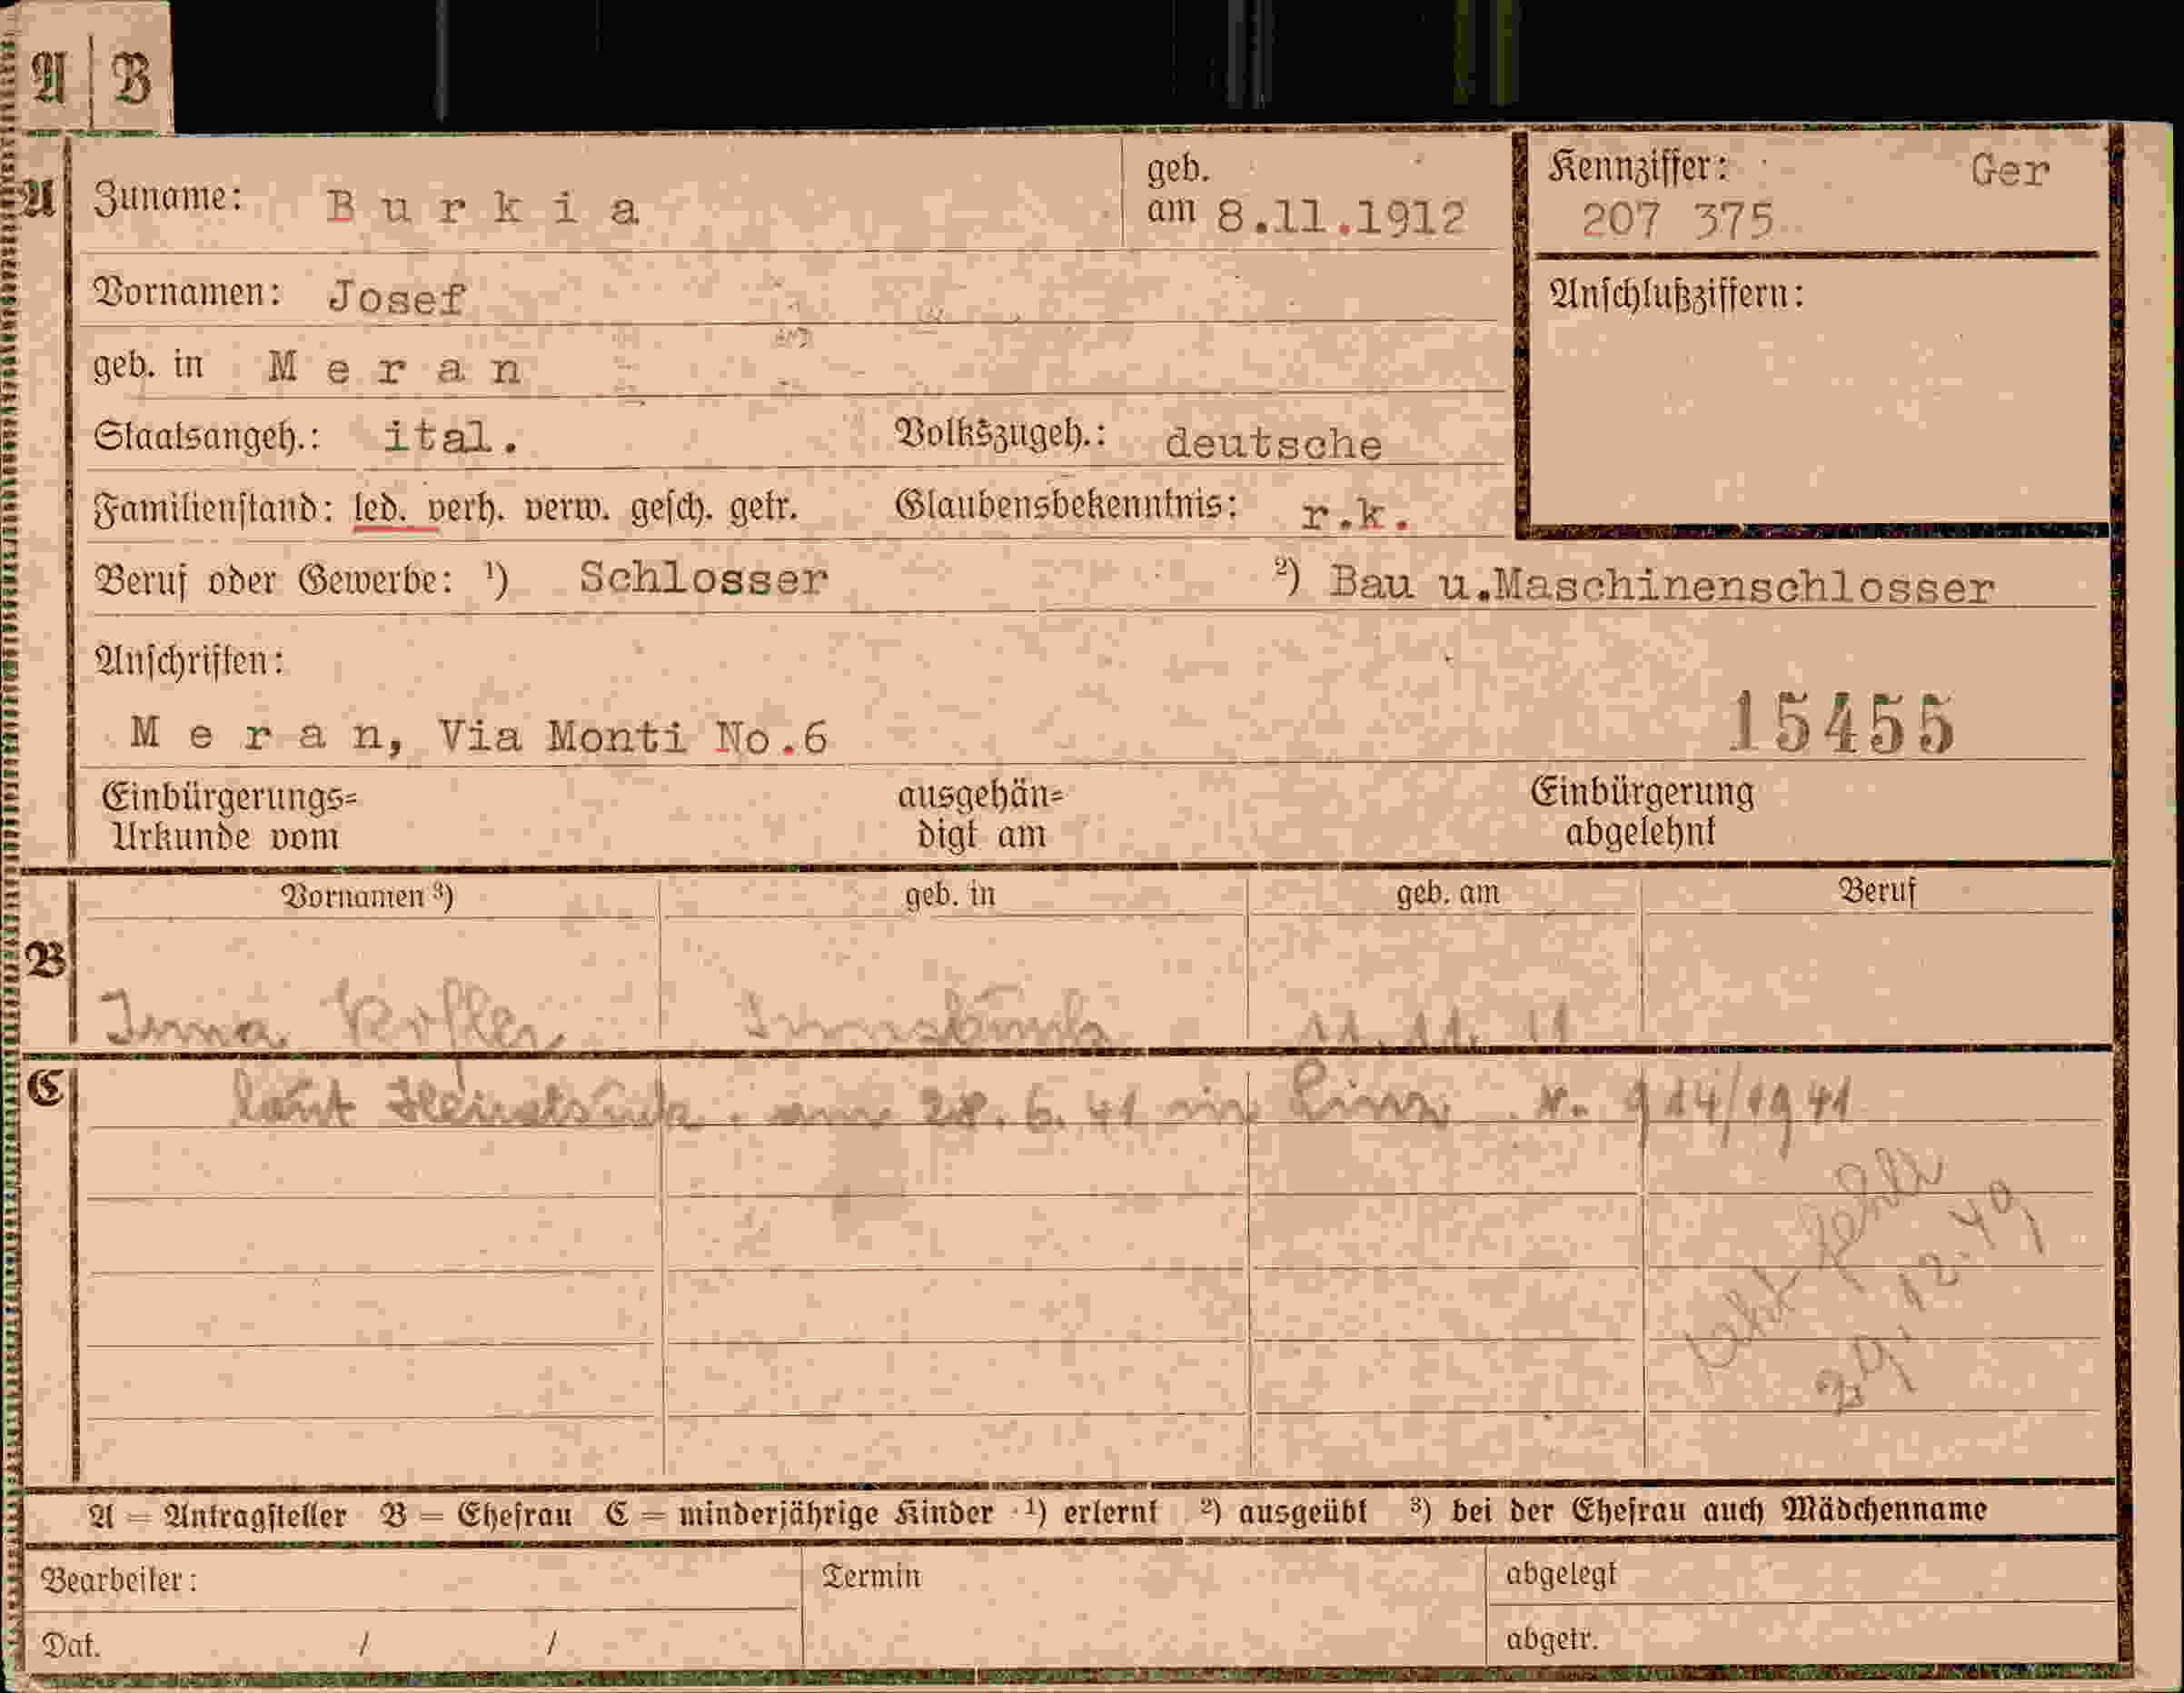 A | B
A Zuname: Burkia geb. am 8.11.1912 Kennziffer: Ger
207 375
Vornamen: Josef Anschlußziffern:
geb. in Meran
Staatsangeh.: ital. Volkszugeh.: deutsche
Familienstand: led. verh. verw. gesch. getr. Glaubensbekenntnis: r.k.
Beruf oder Gewerbe: 1) Schlosser 2) Bau u.Maschinenschlosser
Anschriften:
Meran, Via Monti No.6 15455
Einbürgerungs= ausgehän= Einbürgerung
Urkunde vom digt am abgelehnt
Vornamen 3) geb. in geb. am Beruf
B
Irma Kofler Innsbruck 11. 11. 11
C laut Heiratsurk. am 28. 6. 41 in Linz Nr. 914/1941
Akt fehlt
29. 12. 49
A = Antragsteller B = Ehefrau C = minderjährige Kinder 1) erlernt 2) ausgeübt 3) bei der Ehefrau auch Mädchenname
Bearbeiter: Termin abgelegt
Dat. / / abgetr.